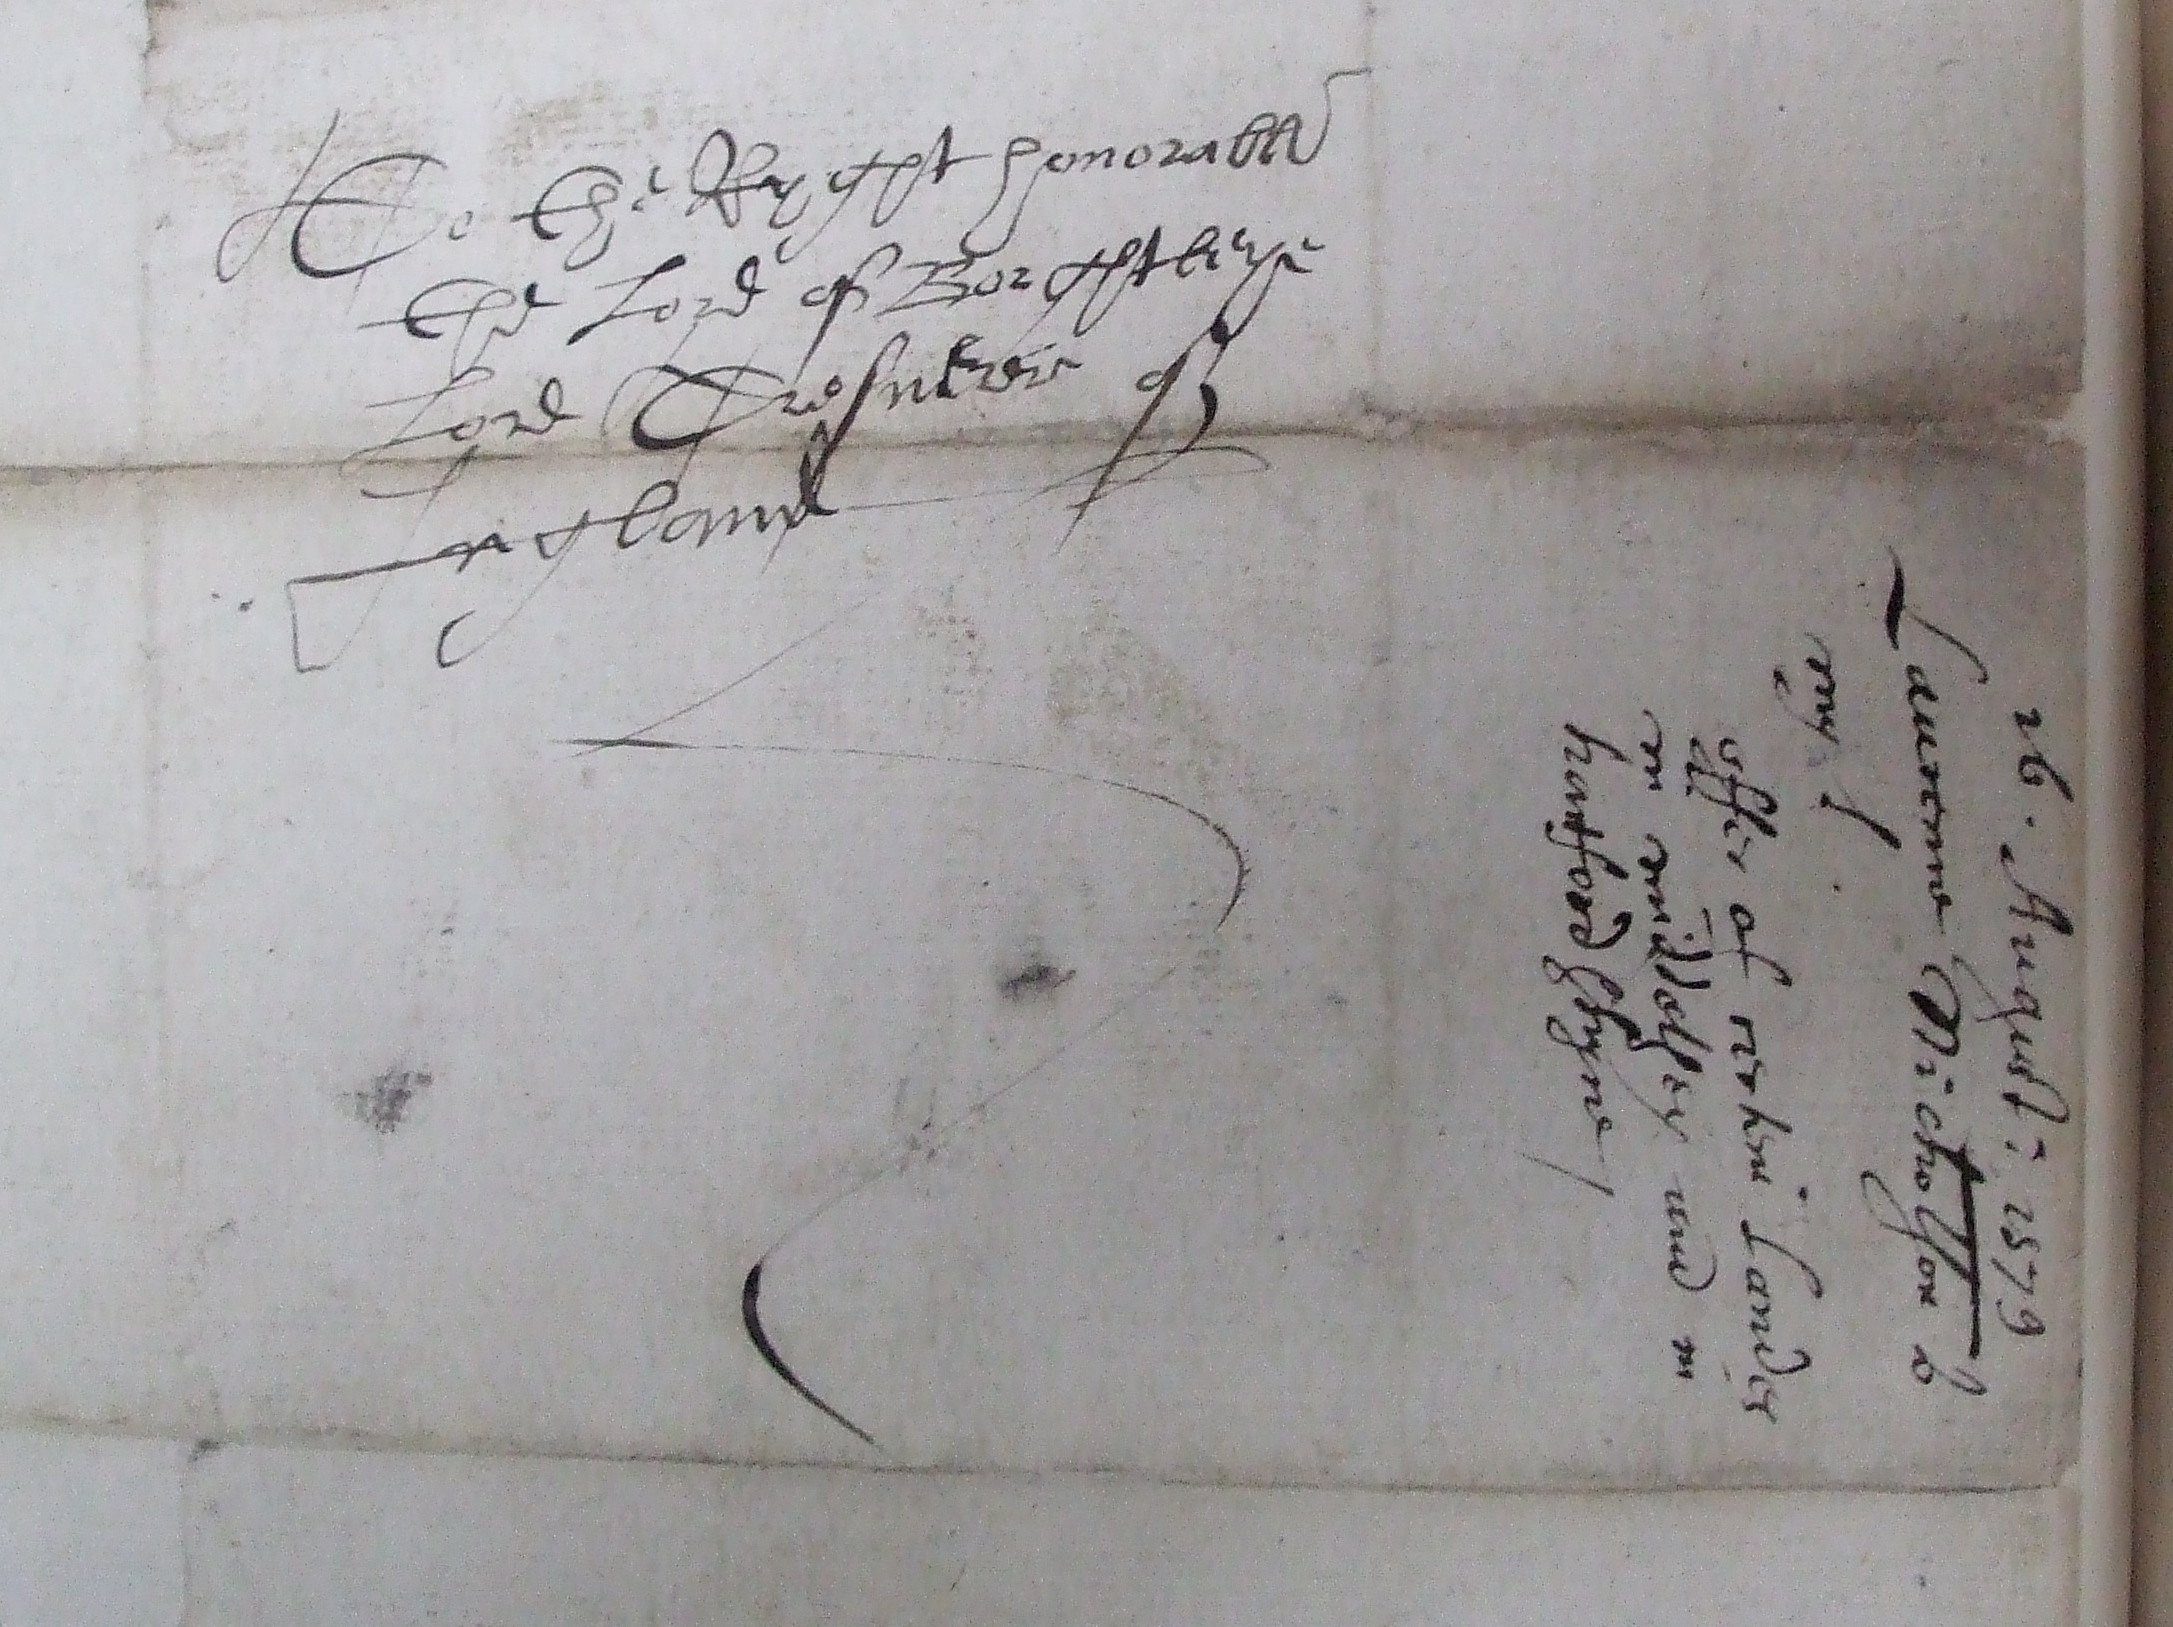 To the Ryght honorable
the Lord of Borghtleye
Lord Tresurer of
Ingland
26. August: 1579
Laurence Nicholson to
my L
offer of certen Landes
in middlesex and in
hartford shyre